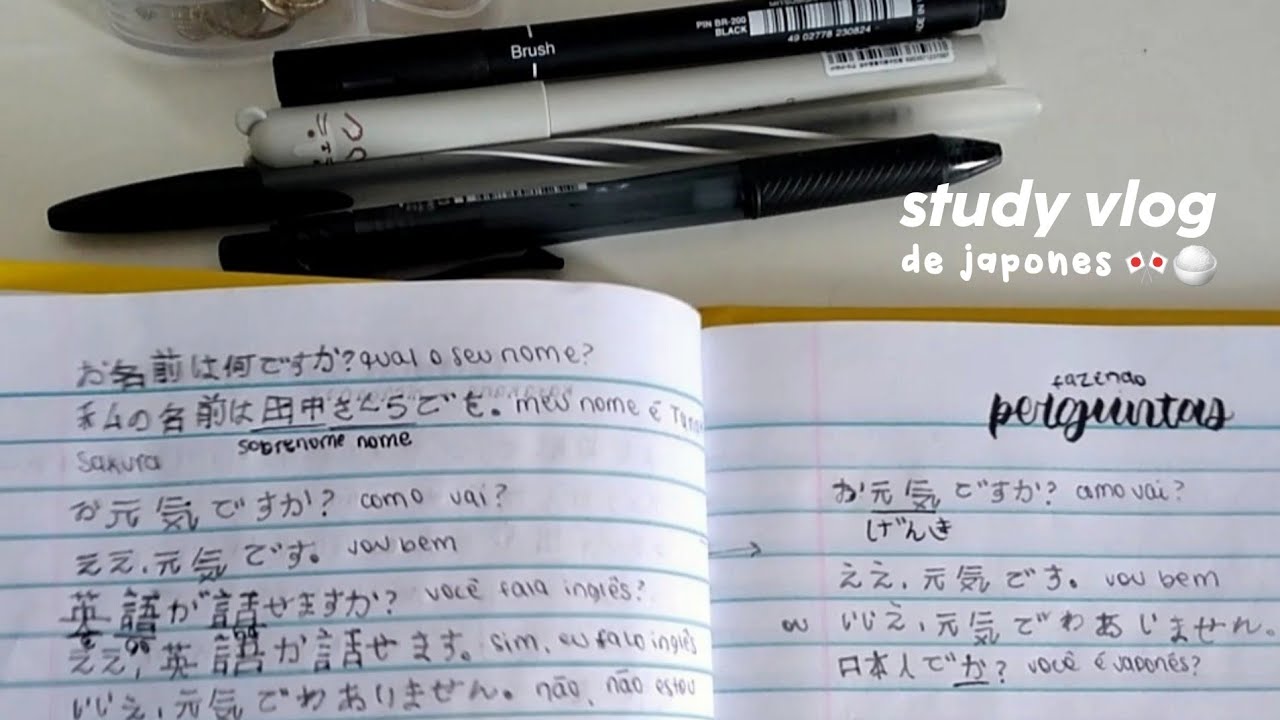 Brush
PIN BR-200
BLACK
49 02778 230824
study vlog
de japones 🎌🍚
お名前は何ですか? qual o seu nome?
私の名前は田中さくらでも。meu nome é Tana
sobrenome nome
Sakura
お元気ですか? como vai?
ええ,元気です。vou bem
英語が話せますか? você fala inglês?
ええ,英語が話せます。sim, eu falo inglês
いいえ,元気でわありません。não, não estou
fazendo
perguntas
お元気ですか? como vai?
げんき
ええ,元気です。vou bem
ou いいえ,元気でわありません。
日本人でか? você é japonês?